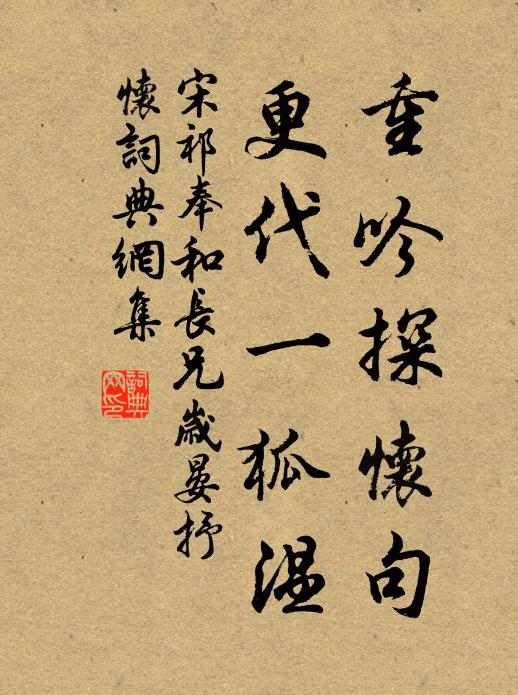 重吟探懷句
更代一狐溫
宋祁奉和長兄歲晏抒
懷詞典網集
詞典
网印